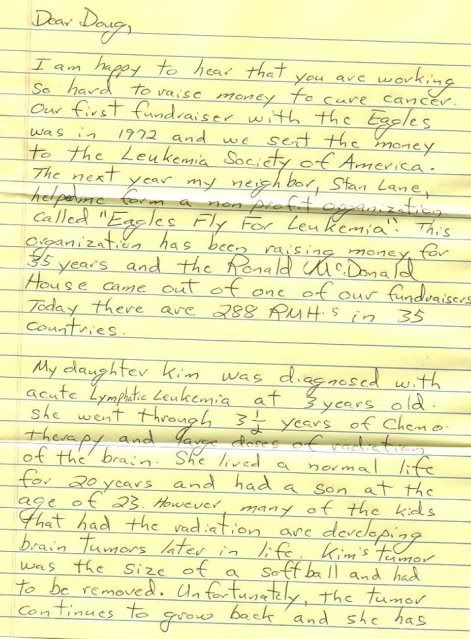 Dear Doug,
I am happy to hear that you are working
so hard to raise money to cure cancer.
Our first fundraiser with the Eagles
was in 1972 and we sent the money
to the Leukemia Society of America.
The next year my neighbor, Stan Lane,
helped me form a non profit organization
called "Eagles Fly For Leukemia". This
organization has been raising money for
35 years and the Ronald McDonald
House came out of one of our fundraisers
Today there are 288 RMH's in 35
countries.
My daughter Kim was diagnosed with
acute Lymphatic Leukemia at 3 years old.
She went through 3 1/2 years of Chemo-
therapy and large doses of radiation
of the brain. She lived a normal life
for 20 years and had a son at the
age of 23. However many of the kids
that had the radiation are developing
brain tumors later in life. Kim's tumor
was the size of a softball and had
to be removed. Unfortunately, the tumor
continues to grow back and she has